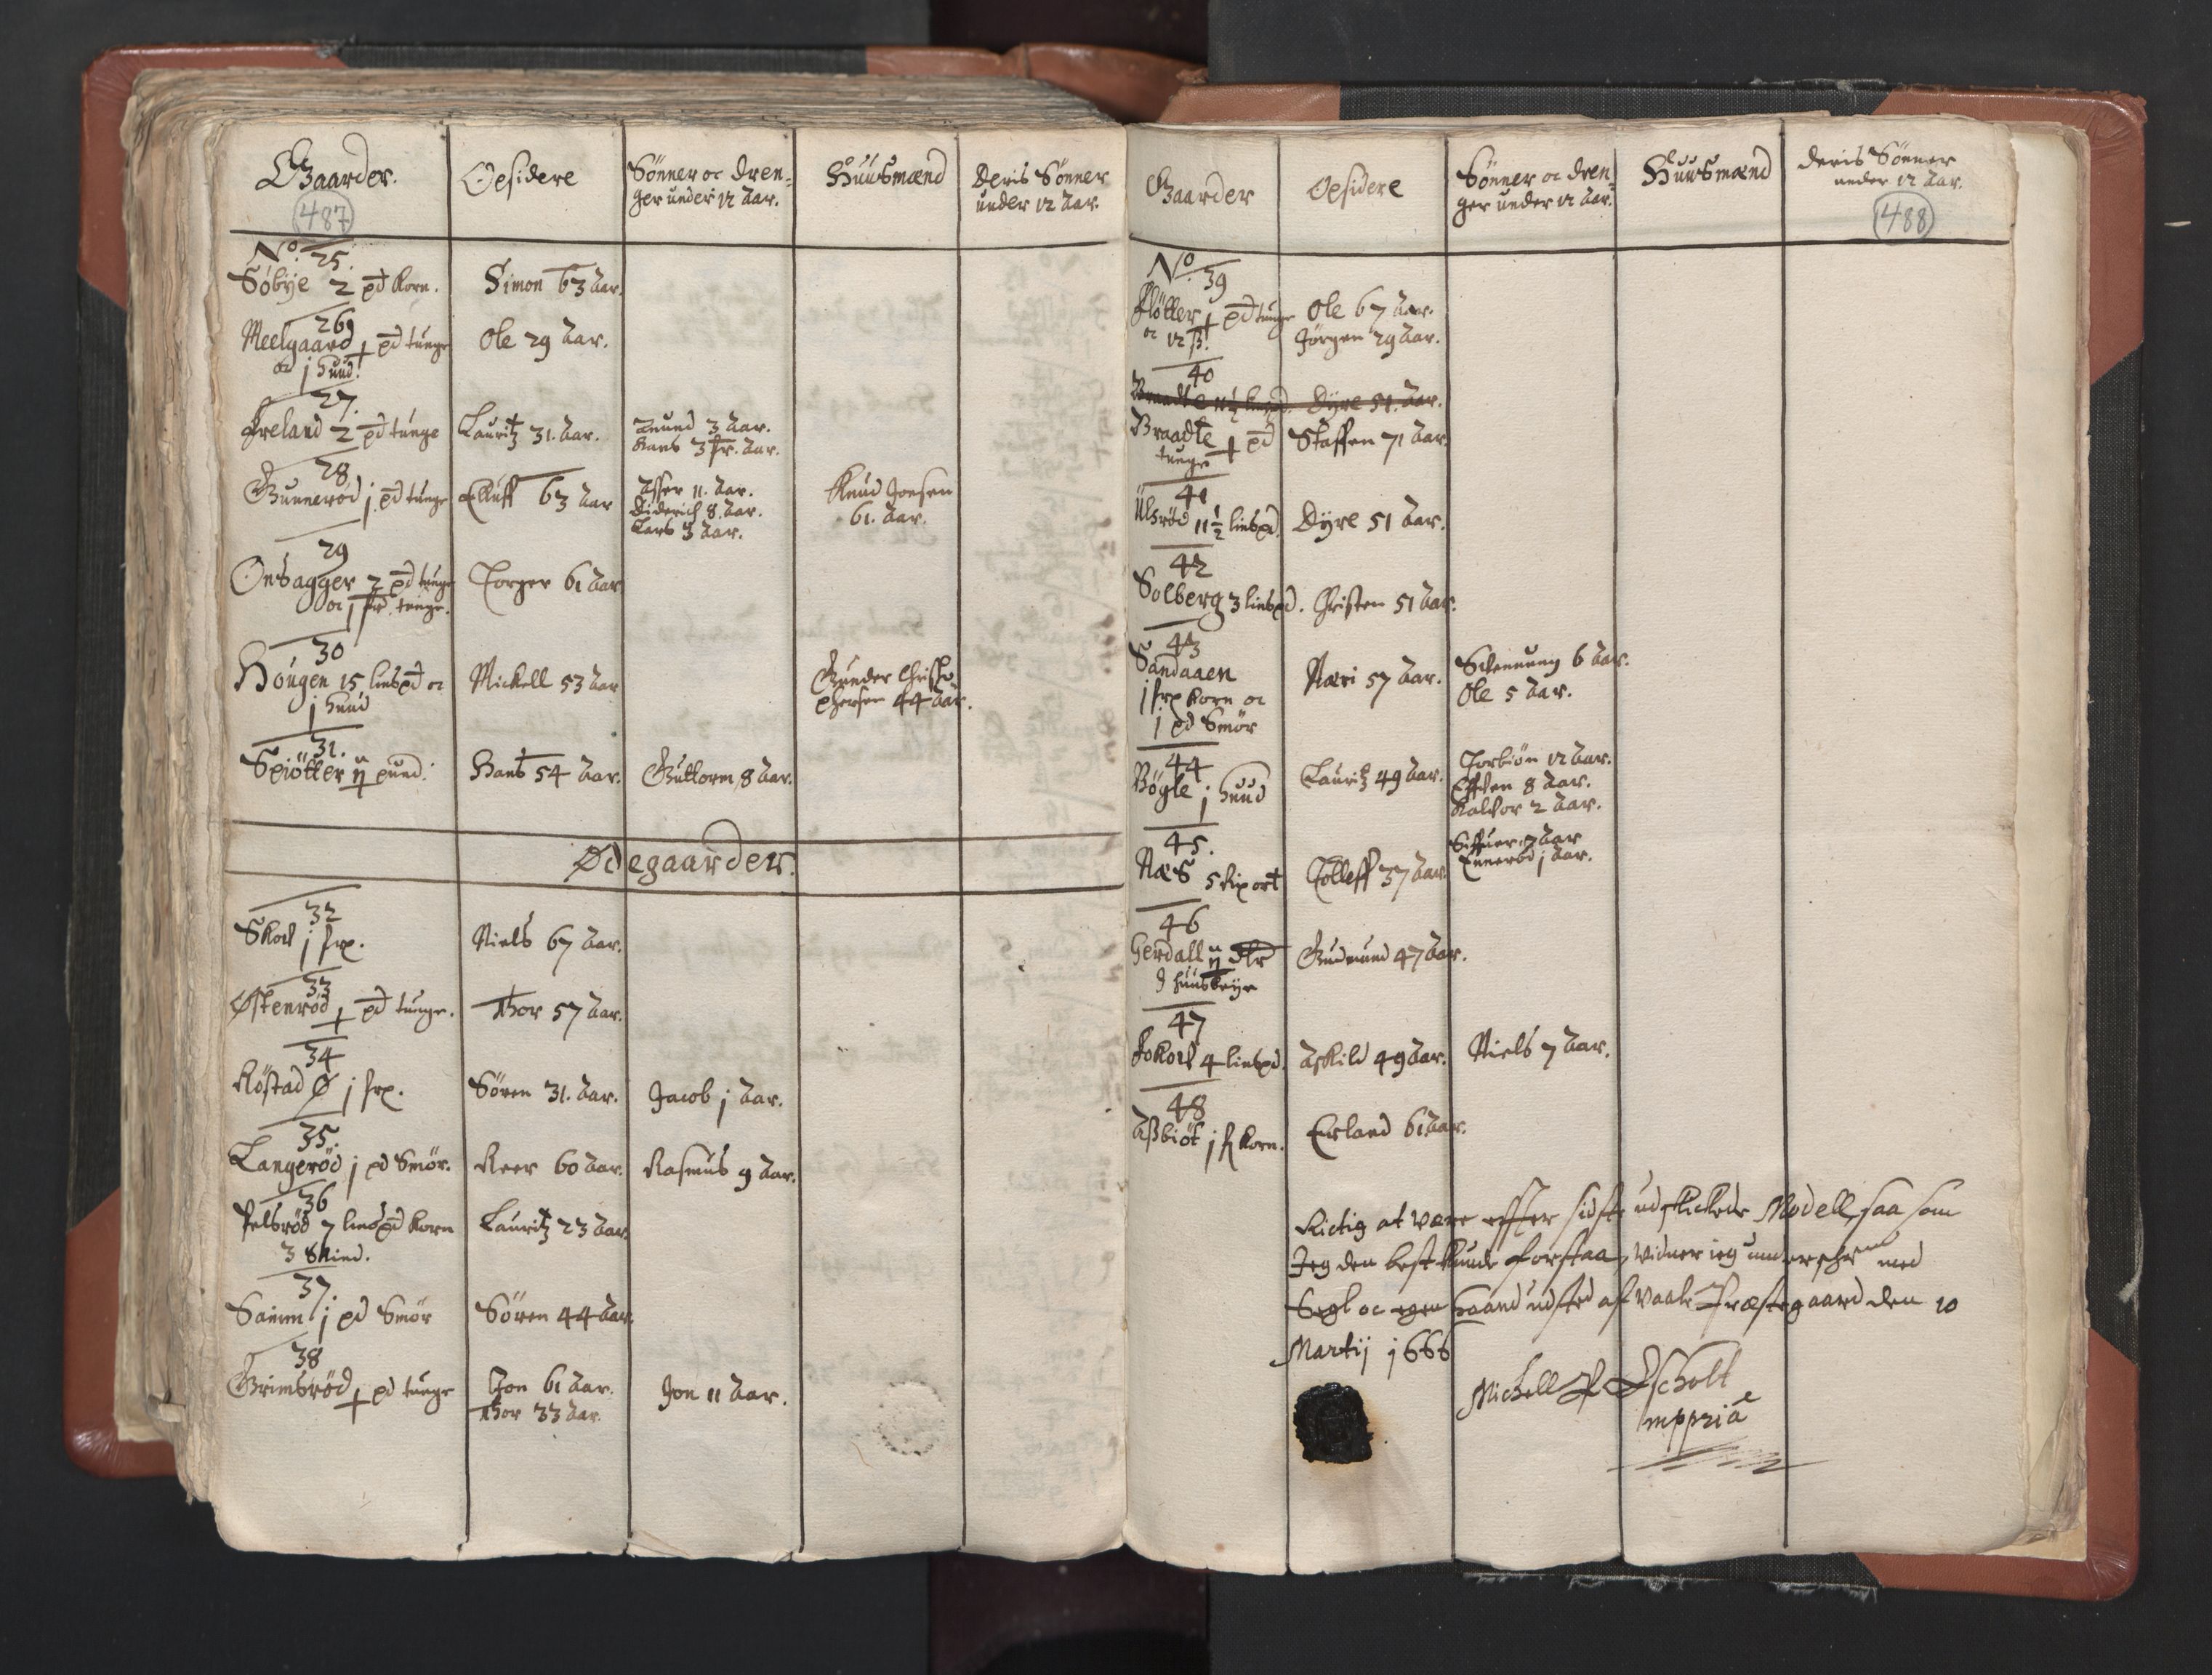 Gaarder.
Opsidere
Sønner oc dren-
ger under 12 Aar.
Huusmænd
Deris Sønner
under 12 Aar.
487
No. 25.
Søbye 2 pd Korn.
Simon 63 Aar.
26
Meelgaard 1 pd tunge
oc j huud.
Ole 29 Aar.
27.
Freland 2 pd tunge
Lauritz 31. Aar.
Anund 3 Aar.
Hans 3 fr. Aar.
28
Gunnerød j pd tunge
Elluff 63 Aar
Asser 11. Aar.
Diderich 8. Aar.
Lars 3 Aar.
Knud Joensen
61. Aar.
29
Onsagger 2 pd tunge
oc j frd. tunge.
Torger 61 Aar
30
Hougen 15 lispd oc
j huud
Mickell 53 Aar
Gunder Christo
phersen 44 Aar.
31.
Spiøtter ij pund.
Hans 54 Aar.
Guttorm 8 Aar.
Ødegaarder.
32
Skou j frp.
Niels 67 Aar.
33
Østenrød + pd tunge.
Thor 57 Aar.
34
Røstad Ø j frp.
Søren 31. Aar.
Jacob j Aar.
35.
Langerød j pd Smør.
Reer 60 Aar.
Rasmus 9 Aar.
36
Pelsrød 7 lispd Korn
3 Skind.
Lauritz 23 Aar
37.
Saium j pd Smør
Søren 44 Aar.
38
Grimsrød + pd tunge
Jon 61 Aar.
Thor 33 Aar.
Jon 11 Aar.
Gaarder
Opsidere
Sønner oc dren-
ger under 12 Aar.
Huusmænd
Deris Sønner
under 12 Aar.
488
No. 39
Fløtter + pd tunge
oc 12 ß.
Ole 67 Aar.
Jørgen 29 Aar.
40
Braadte 11 1/2 lispd. Dyre 51. Aar.
Braadte + pd
tunge
Staffen 71 Aar.
41
Ulsrød 11 1/2 lispd.
Dyre 51 Aar.
42
Solberg 3 lispd.
Christen 51 Aar.
43
Sandaaen
j frp Korn oc
j pd Smør
Næri 57 Aar.
Svennung 6 Aar.
Ole 5 Aar.
44
Bøgle j huud
Lauritz 49 Aar.
Torbiøn 12 Aar.
Effven 8 Aar.
Halvor 2 Aar.
45.
Næs 5 Rix ort
Tolleff 37 Aar
Siffuer 7 Aar
Ennerød j Aar.
46
Gerdall ij dlr
Gudmund 47 Aar.
47
Fokou 4 lispd.
Askild 49 Aar.
Niels 7 Aar.
48
Aßbiøt j fr Korn.
Erland 61 Aar.
Rictig at være effter sidste udskickede Modell, saa som
Jeg den best kunde forstaa, Vidner ieg underschr med
Segl oc egen haand udsted af Vaale Præstegaard den 10
Martij 1666
Michell P Dscholt
mppriae